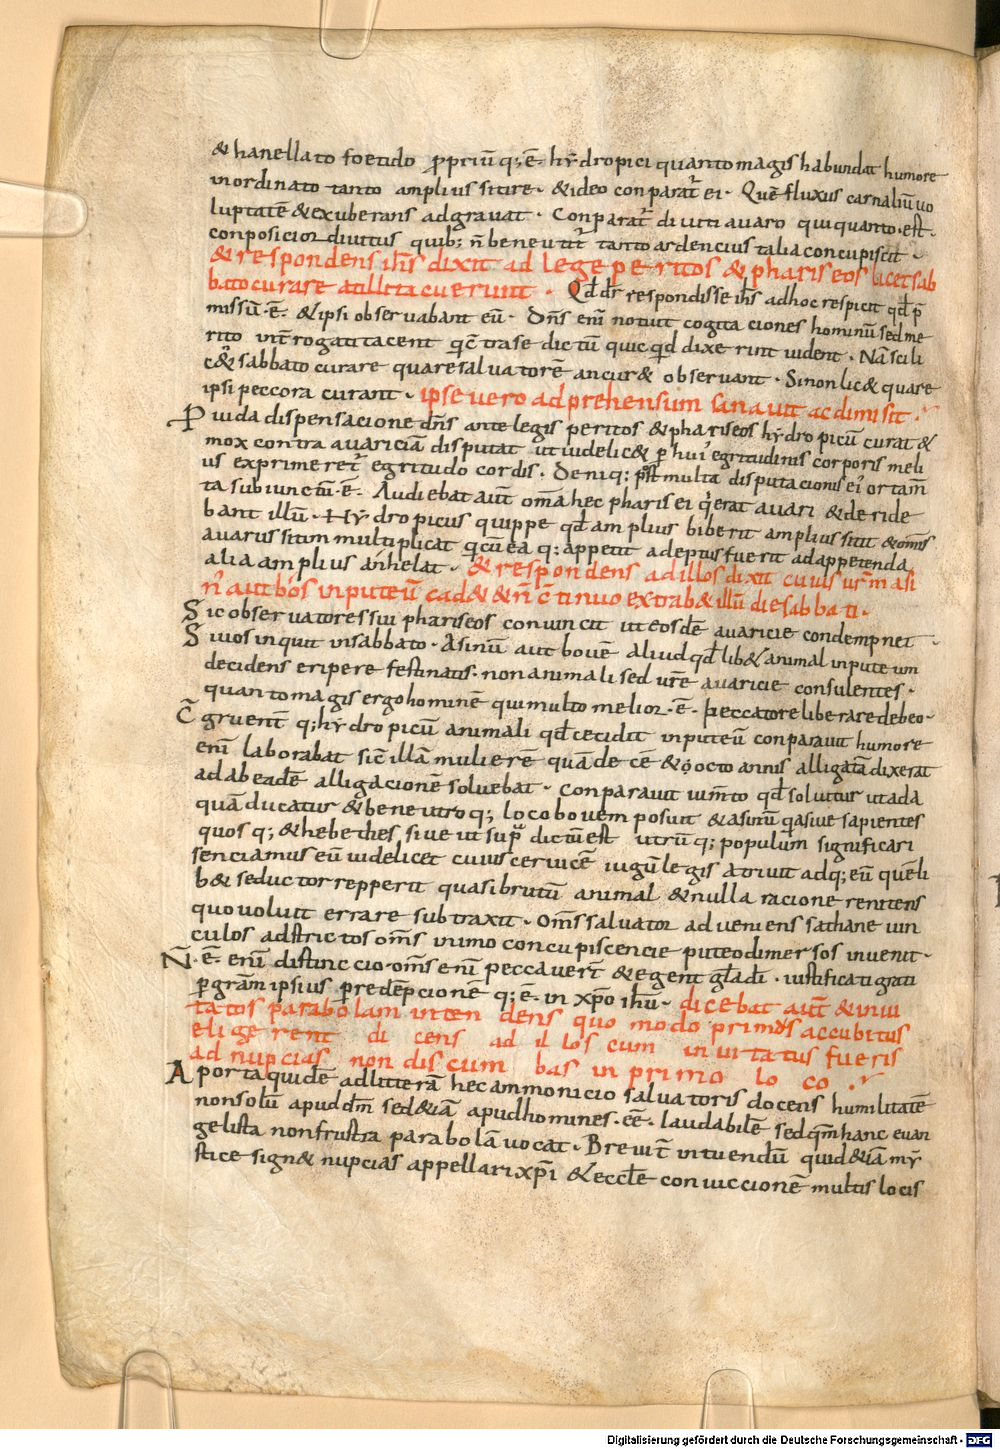 & hanellato foetido ꝓpriũ q; ẽ hydropici quanto magis habundat humore
inordinato tanto amplius sitire · & ideo conparat̃ ei · Quẽ fluxus carnaliũ uo
luptatẽ & exuberans adgravat · Conparat̃ diviti avaro qui quanto · est ·
conposicior divitiis quib; ñ bene utit̃ tanto ardencius talia concupiscit ·
& respondens ihs̃ dixit ad lege peritos & phariseos licet sab
bato curare at illi tacuerunt · Qd̃ dr̃ respondisse ihs̃ ad hoc respicit qd̃ p̃
missũ · ẽ · & ipsi observabant eũ · Dñs enĩ novit cogitaciones hominũ sed me
rito int̃rogati tacent q̃ c̃tra se dictũ quicqd̃ dixerint vident · Nã si li
c& sabbato curare quare salvatorẽ an cur& observant · Si non lic& quare
ipsi peccora curant · ipse vero adprehensum sanavit ac dimisit ·
Pvida dispensacione dñs ante legis peritos & phariseos hydropicũ curat &
mox contra avariciã disputat ut videlic& ꝑ hui' egritudinis corporis meli
us exprimeret̃ egritudo cordis · Deniq: p̃t multa disputacionis ei' ortam̃
ta subiunctũ · ẽ · Audiebat aut̃ om̃a hec pharisei q̃ erat avari & deride
bant illũ · Hydropicus quippe qd̃ amplius biberit amplius sitit & om̃is
avarus sitim multiplicat q cũ ea q: appetit adeptus fuerit ad appetenda
alia amplius anhelat · & respondens ad illos dixit cuius ur̃m asi
n' aut bos in puteũ cad& & ñ c̃tinuo extrah& illũ die sabbati ·
Sic observatores sui phariseos convincit ut eosdẽ avaricie condempnet ·
Si vos inquit in sabbato · Asinũ aut bovẽ aliud qd̃lib& animal in puteum
decidens eripere festinatis · non animali sed ur̃e avaricie consulentes ·
quanto magis ergo hominẽ qui multo melior · ẽ · peccatore liberare debeo ·
C̃gruent̃ q; hydropicũ animali qd̃ cecidit in puteũ conparavit humore
enĩ laborabat sic̃ illã mulierẽ quã decẽ & octo annis alligatã dixerat
ad abeadẽ alligacionẽ solvebat · conparavit ium̃to qd̃ solvitur ut ad a
quã ducatur & bene utroq; loco bovem posuit & asinũ q̃ sive sapientes
quos q; & hebethes sive ut sup̃ dictũ est utrũq; populũm significari
senciamus eũ videlicet cuius cervicẽ iugũ legis atrivit adq; eũ quẽ li
b& seductor repperit quasi brutũ animal & nulla racione renitens
quo voluit errare subtraxit · Om̃s salvator adveniens sathane vin
culos adstrictos om̃s in imo concupiscencie puteo dimersos invenit ·
N̄ · ẽ · enĩ distinccio · om̃s enĩ peccaver̃t & egent gl̃a dĩ · iustificati grati
ꝑ gram̃ ipsius ꝑ redẽpcionẽ q; ẽ · in xp̃o ihũ · dicebat aut̃ & invi
tatos parabolam intendens quo modo primos accubitus
eligerent dicens ad illos cum invitatus fueris
ad nupcias non discumbas in primo loco ·
Aporta quidẽ ad litterã hec ammonicio salvatoris docens humilitatẽ
non solũ apud dm̃ sed &iã apud homines · eẽ · laudabilẽ sed qm̃ hanc evan
gelista non frustra parabolã vocat · Brevit̃ intuendũ quid &iã my
stice sign& nupcias appellari xp̃i & eccl̃e conviccionẽ multis locis
Digitalisierung gefördert durch die Deutsche Forschungsgemeinschaft - DFG